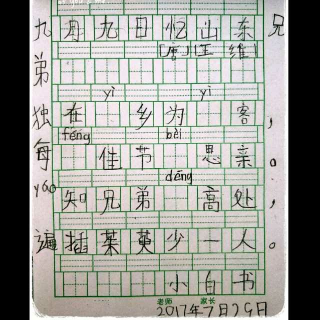 九月九日忆山东兄
弟 [唐]王维
yì yì
独在 乡为 客，
féng bèi
每 佳节 思亲。
dēng
yáo 知兄弟 高处，
遍插茱萸少一人。
小白书
老师 家长
2017年7月29日